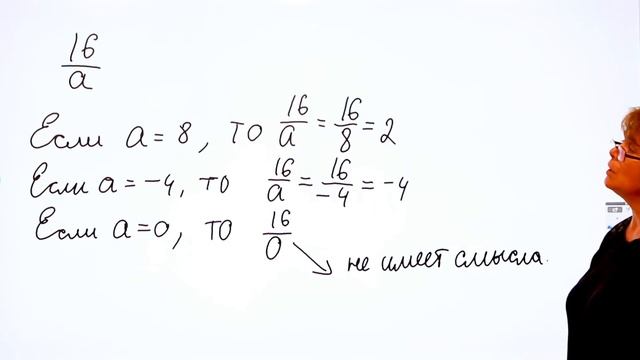 16/a
Если a = 8, то 16/a = 16/8 = 2
Если a = -4, то 16/a = 16/-4 = -4
Если a = 0, то 16/0
не имеет смысла.